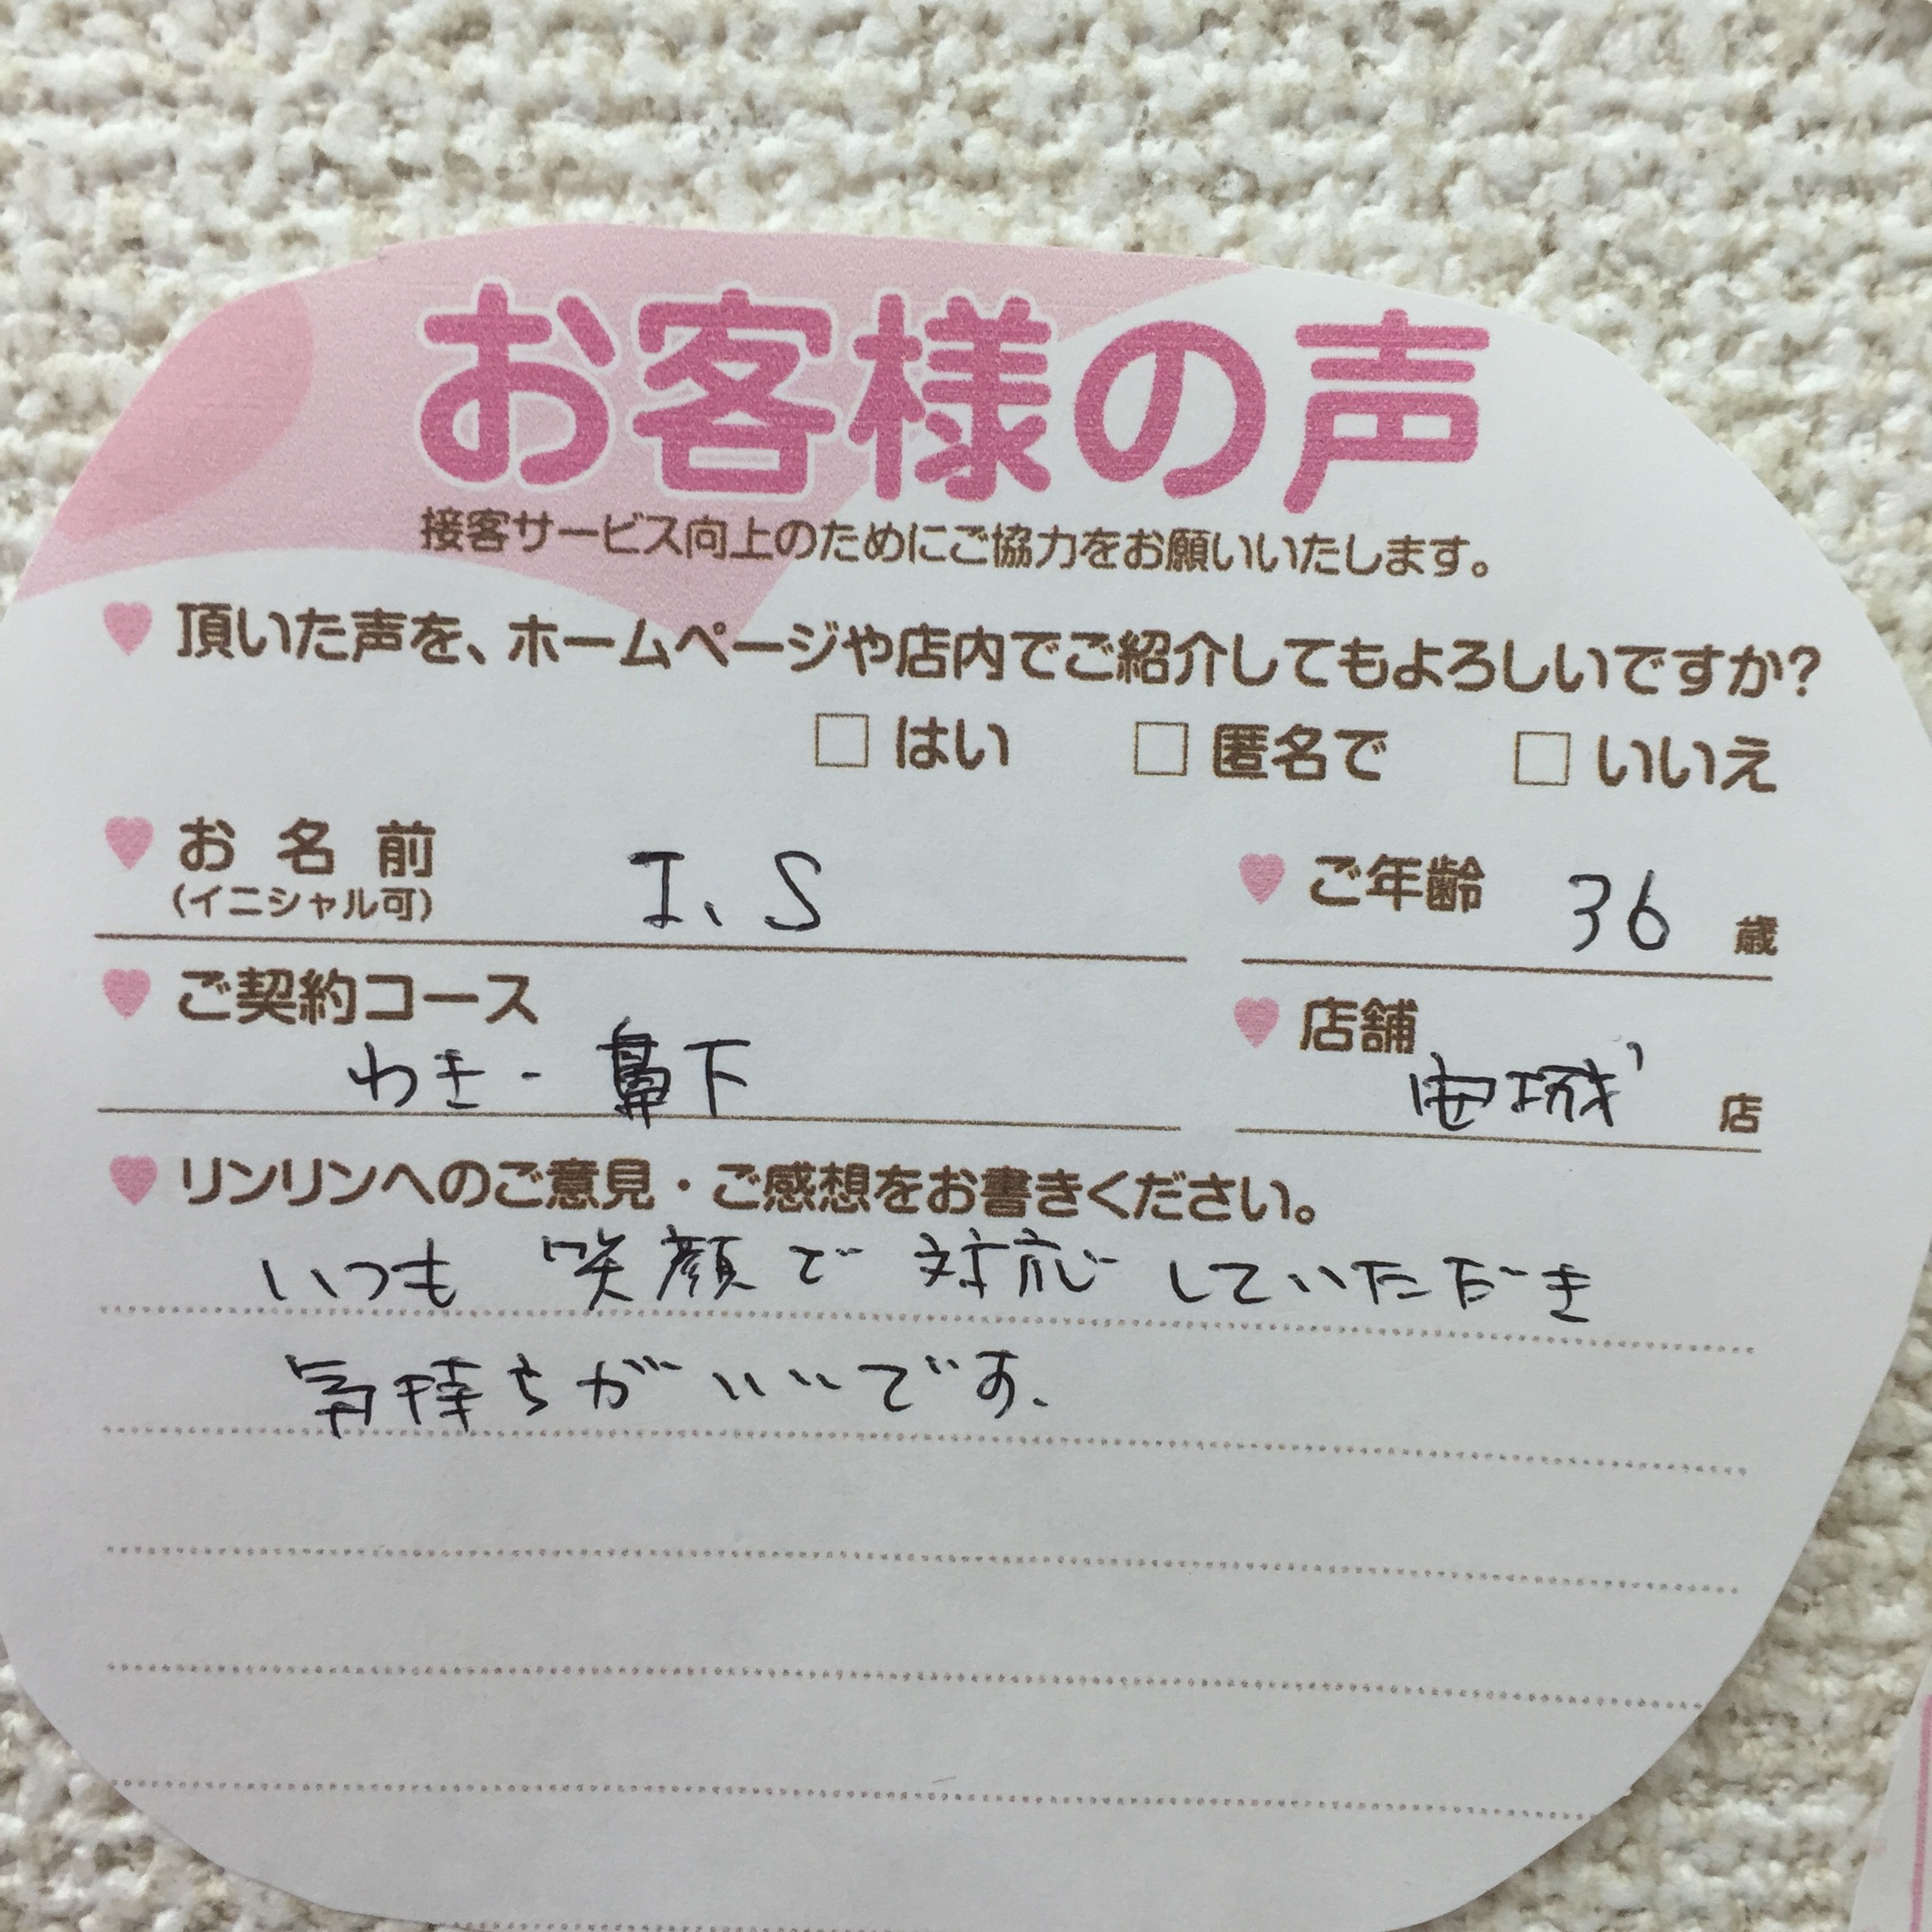 お客様の声
接客サービス向上のためにご協力をお願いいたします。
頂いた声を、ホームページや店内でご紹介してもよろしいですか?
□ はい □ 匿名で □ いいえ
お名前 I、S ご年齢 36 歳
(イニシャル可)
ご契約コース 店舗
わき・鼻下 安城 店
リンリンへのご意見・ご感想をお書きください。
いつも 笑顔で 対応していただき
気持ちがいいです.